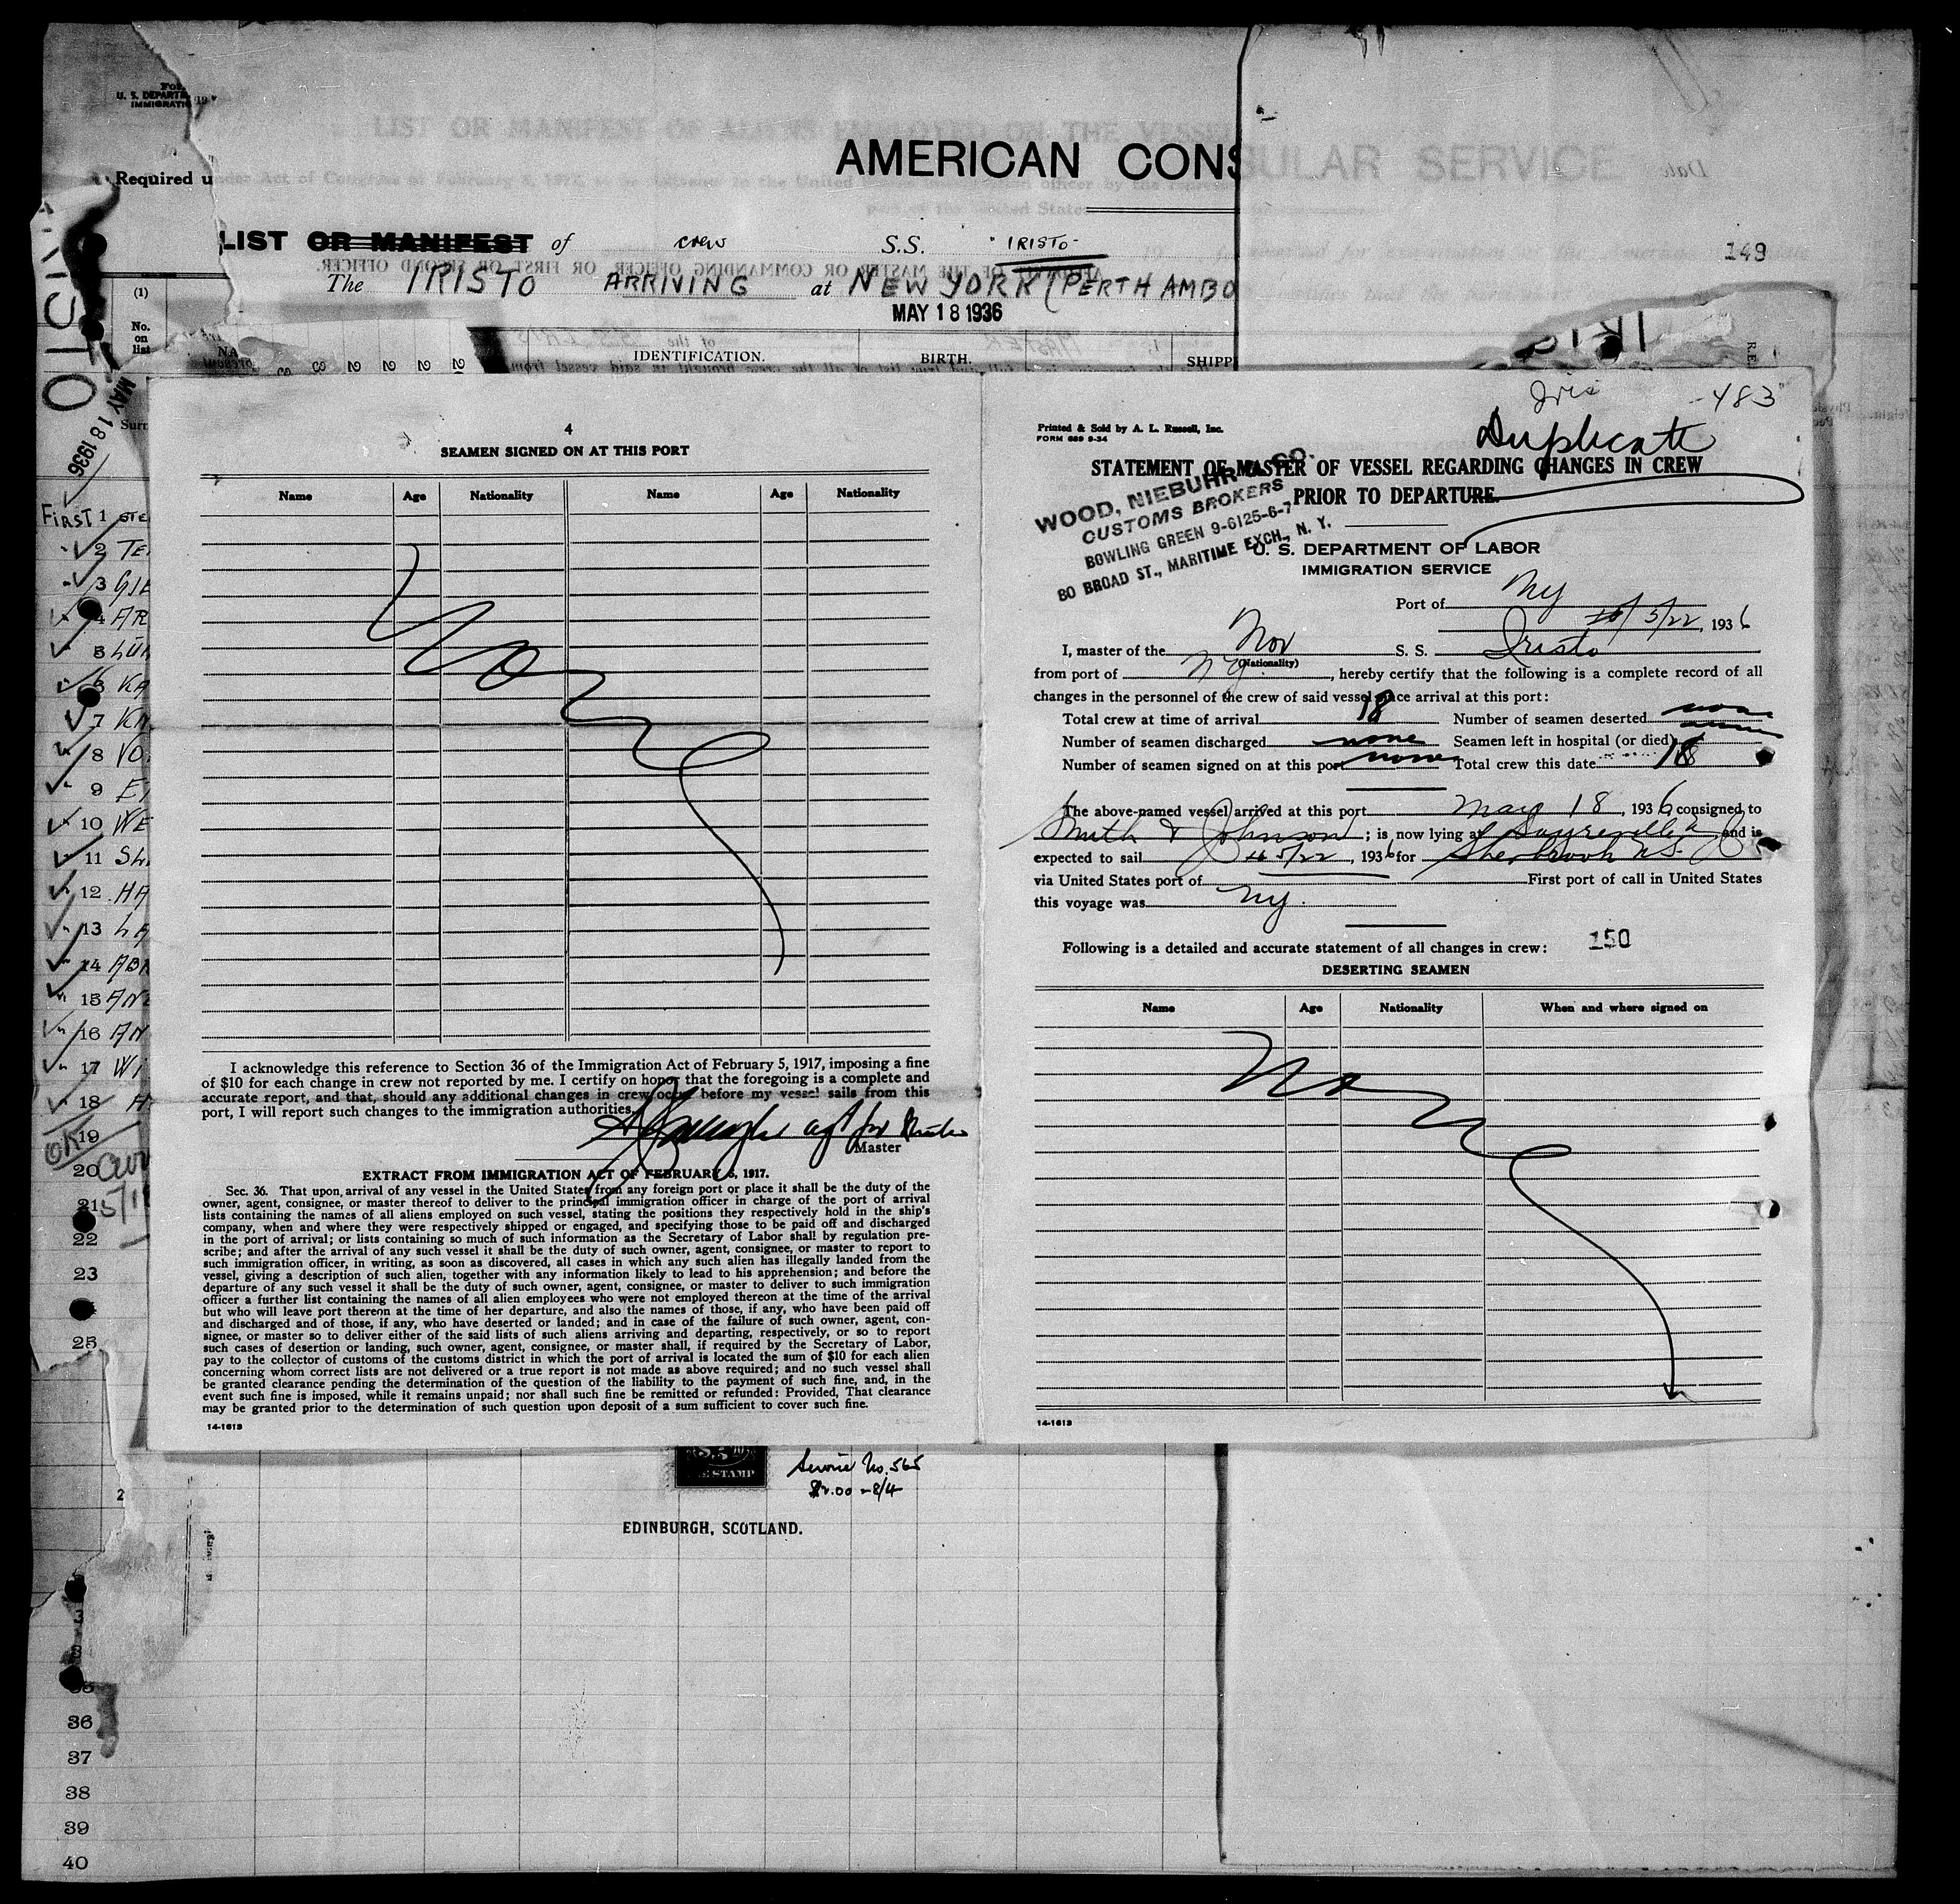 U. S. DEPARTM
IMMIGRATIO
Required u
AMERICAN CONSULAR SERVICE
LIST OR MANIFEST of crew S.S. "IRISTO"
149
The IRISTO ARRIVING at NEW YORK (PERTH AMBO
MAY 18 1936
(1)
No.
on
list
IDENTIFICATION.
BIRTH.
SHIPP
MAY 18 1936
4
SEAMEN SIGNED ON AT THIS PORT
Name Age Nationality Name Age Nationality
None
I acknowledge this reference to Section 36 of the Immigration Act of February 5, 1917, imposing a fine
of $10 for each change in crew not reported by me. I certify on honor that the foregoing is a complete and
accurate report, and that, should any additional changes in crew occur before my vessel sails from this
port, I will report such changes to the immigration authorities.
agt for Master
Master
EXTRACT FROM IMMIGRATION ACT OF FEBRUARY 5, 1917.
Sec. 36. That upon arrival of any vessel in the United States from any foreign port or place it shall be the duty of the
owner, agent, consignee, or master thereof to deliver to the principal immigration officer in charge of the port of arrival
lists containing the names of all aliens employed on such vessel, stating the positions they respectively hold in the ship's
company, when and where they were respectively shipped or engaged, and specifying those to be paid off and discharged
in the port of arrival; or lists containing so much of such information as the Secretary of Labor shall by regulation pre-
scribe; and after the arrival of any such vessel it shall be the duty of such owner, agent, consignee, or master to report to
such immigration officer, in writing, as soon as discovered, all cases in which any such alien has illegally landed from the
vessel, giving a description of such alien, together with any information likely to lead to his apprehension; and before the
departure of any such vessel it shall be the duty of such owner, agent, consignee, or master to deliver to such immigration
officer a further list containing the names of all alien employees who were not employed thereon at the time of the arrival
but who will leave port thereon at the time of her departure, and also the names of those, if any, who have been paid off
and discharged and of those, if any, who have deserted or landed; and in case of the failure of such owner, agent, con-
signee, or master so to deliver either of the said lists of such aliens arriving and departing, respectively, or so to report
such cases of desertion or landing, such owner, agent, consignee, or master shall, if required by the Secretary of Labor,
pay to the collector of customs of the customs district in which the port of arrival is located the sum of $10 for each alien
concerning whom correct lists are not delivered or a true report is not made as above required; and no such vessel shall
be granted clearance pending the determination of the question of the liability to the payment of such fine, and, in the
event such fine is imposed, while it remains unpaid; nor shall such fine be remitted or refunded: Provided, That clearance
may be granted prior to the determination of such question upon deposit of a sum sufficient to cover such fine.
14-1613
-483
Duplicate
Printed & Sold by A. L. Russell, Inc.
FORM 689 9-34
STATEMENT OF MASTER OF VESSEL REGARDING CHANGES IN CREW
PRIOR TO DEPARTURE
WOOD, NIEBUHR & CO.
CUSTOMS BROKERS
BOWLING GREEN 9-6125-6-7
80 BROAD ST., MARITIME EXCH., N. Y.
U. S. DEPARTMENT OF LABOR
IMMIGRATION SERVICE
Port of NY
5/22, 1936
I, master of the Nor S. S. Iristo
(Nationality)
from port of NY, hereby certify that the following is a complete record of all
changes in the personnel of the crew of said vessel since arrival at this port:
Total crew at time of arrival 18 Number of seamen deserted none
Number of seamen discharged none Seamen left in hospital (or died) none
Number of seamen signed on at this port none Total crew this date 18
The above-named vessel arrived at this port May 18, 1936 consigned to
Smith & Johnson; is now lying at Sayreville NJ and is
expected to sail 5/22, 1936 for Sherbrook NS
via United States port of First port of call in United States
this voyage was NY.
Following is a detailed and accurate statement of all changes in crew: 150
DESERTING SEAMEN
Name Age Nationality When and where signed on
None
14-1613
First 1 STE
2 TE
3 GJE
4 AR
5 LÜ
6 KA
7 KN
8 VO
9 E
10 WE
11 SH
12 HA
13 LA
14 ABR
15 AN
16 AN
17 Wi
18 H
19
20
21
22
23
25
OK
STAMP
Service No. 565
$2.00 = 8/4
EDINBURGH, SCOTLAND.
36
37
38
39
40